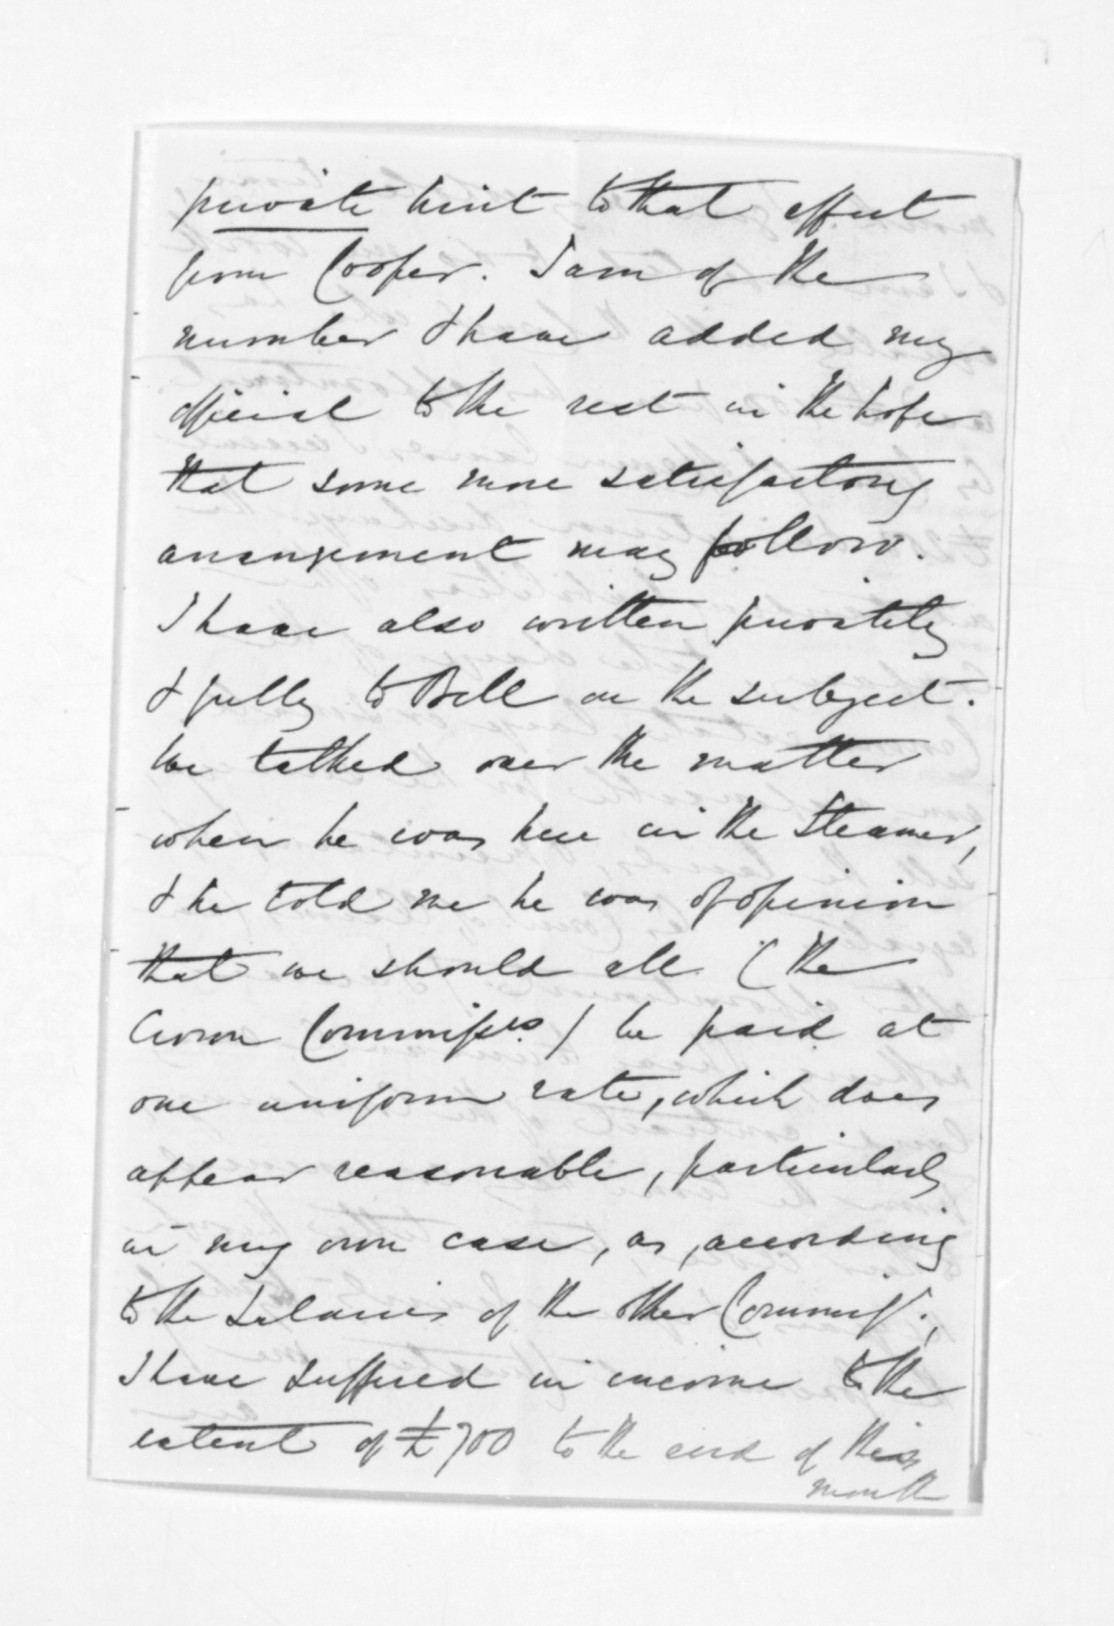 private hint to that effect
from Cooper. I am of the
number & have added my
official to the rest in the hope
that some more satisfactory
arrangement may follow.
I have also written privately
& fully to Bell on the subject.
We talked over the matter
when he was here in the Steamer,
& he told me he was of opinion
that we should all (the
Crown Commissrs) be paid at
one uniform rate, which does
appear reasonable, particularly
in my own case, as, according
to the Salaries of the other Commiss.,
I have suffered in income to the
extent of £700 to the end of this
month